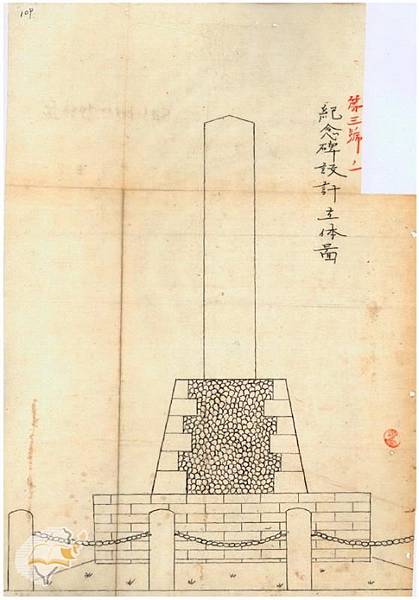 109
第三號ノ一
紀念碑設計立体圖